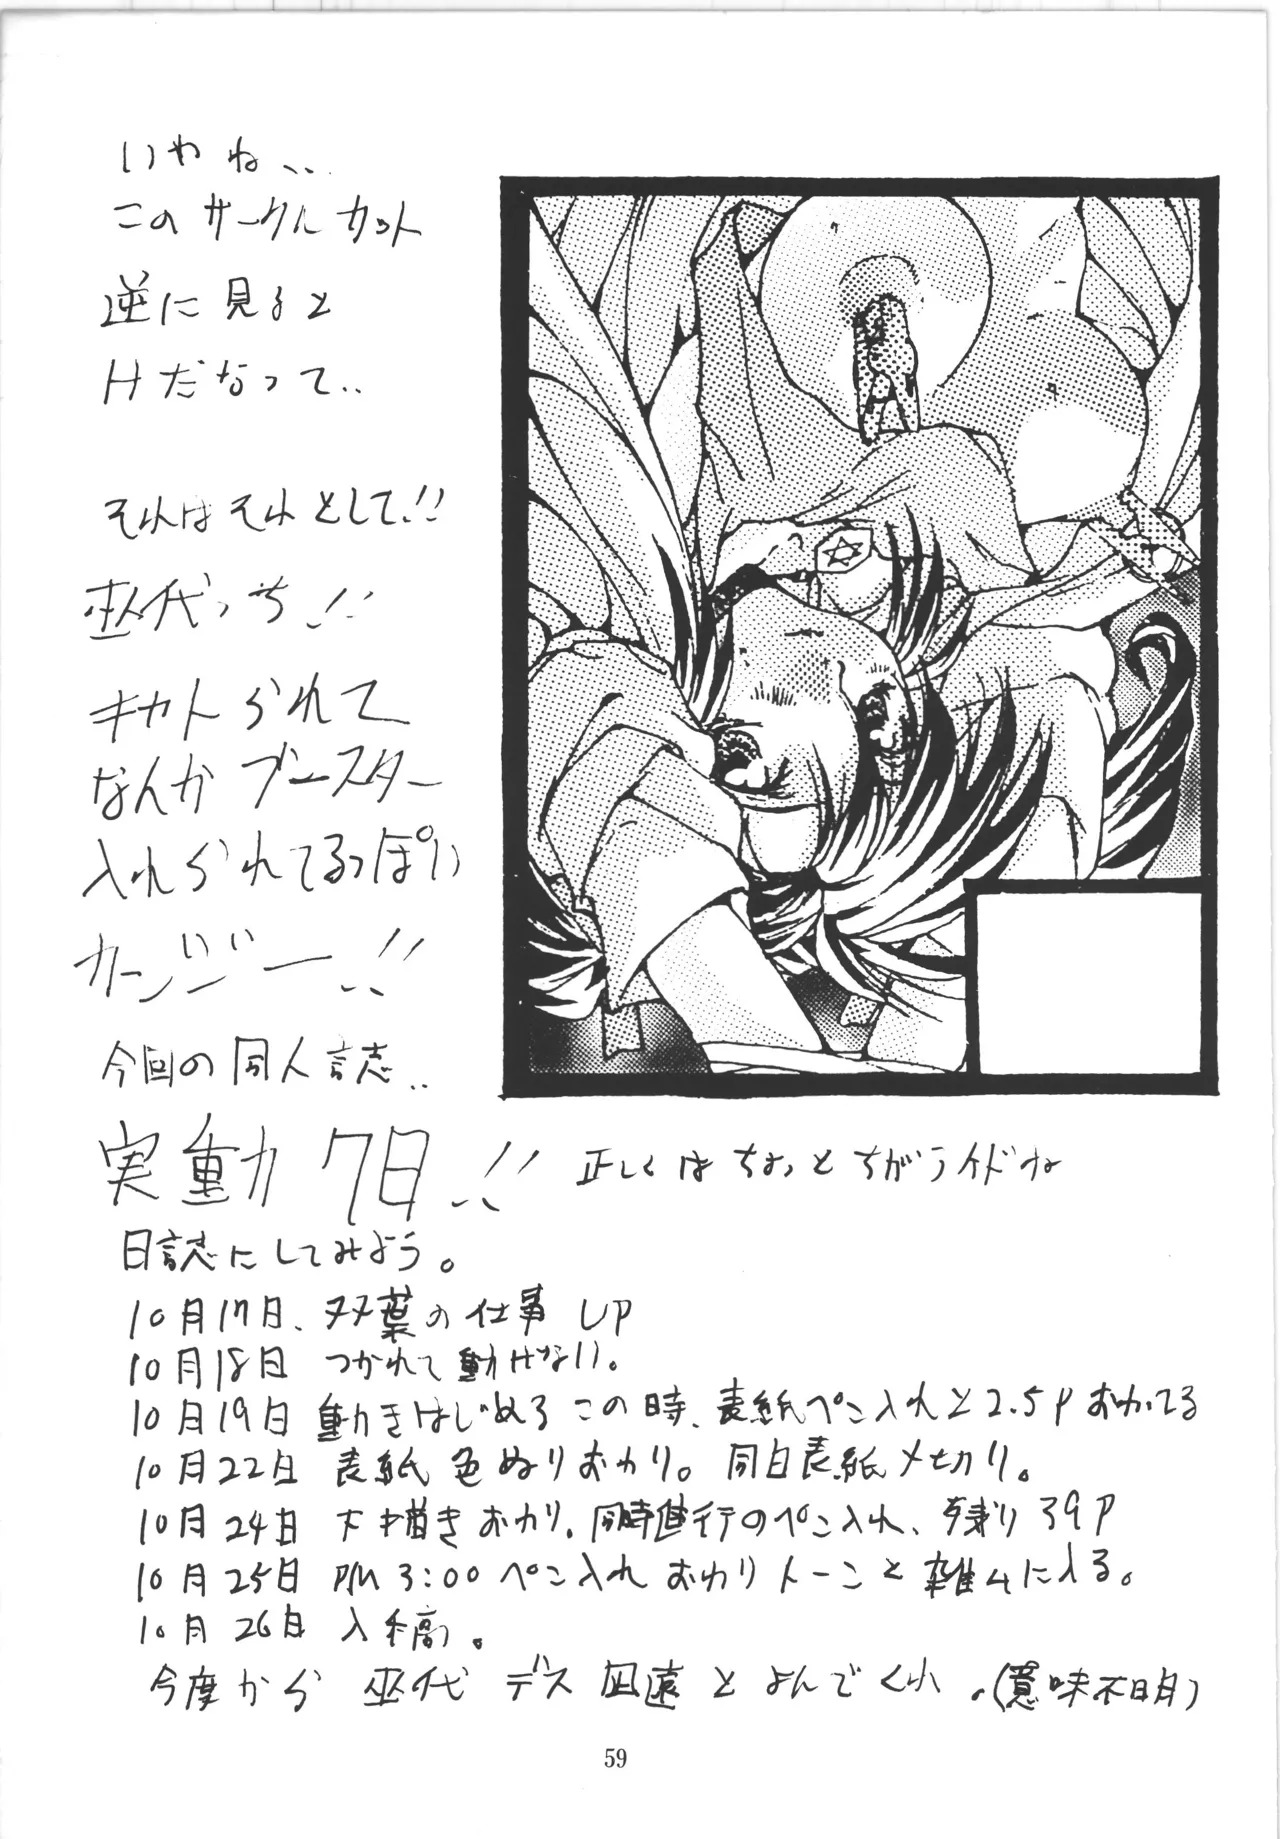 いやね、、
このサークルカット
逆に見ると
Hだなって、、
それはそれとして!!
巫代っち!!
キャトられて
なんかブースター
入れられてるっぽい
カーンジー!!
今回の同人誌、、
実動7日!!
正しくはちょっとちがうケドね
日誌にしてみよう。
10月17日、双葉の仕事 UP
10月18日 つかれて動けない。
10月19日 動きはじめる この時、表紙ペン入れと2.5Pおわってる
10月22日 表紙色ぬりおわり。同日表紙〆切り。
10月24日 下描きおわり。同時進行のペン入れ、残り39P
10月25日 PM 3:00 ペン入れ おわりトーンと雑ムに入る。
10月26日 入稿。
今度から 巫代 デス 凪遠 とよんでくれ。(意味不明)
59